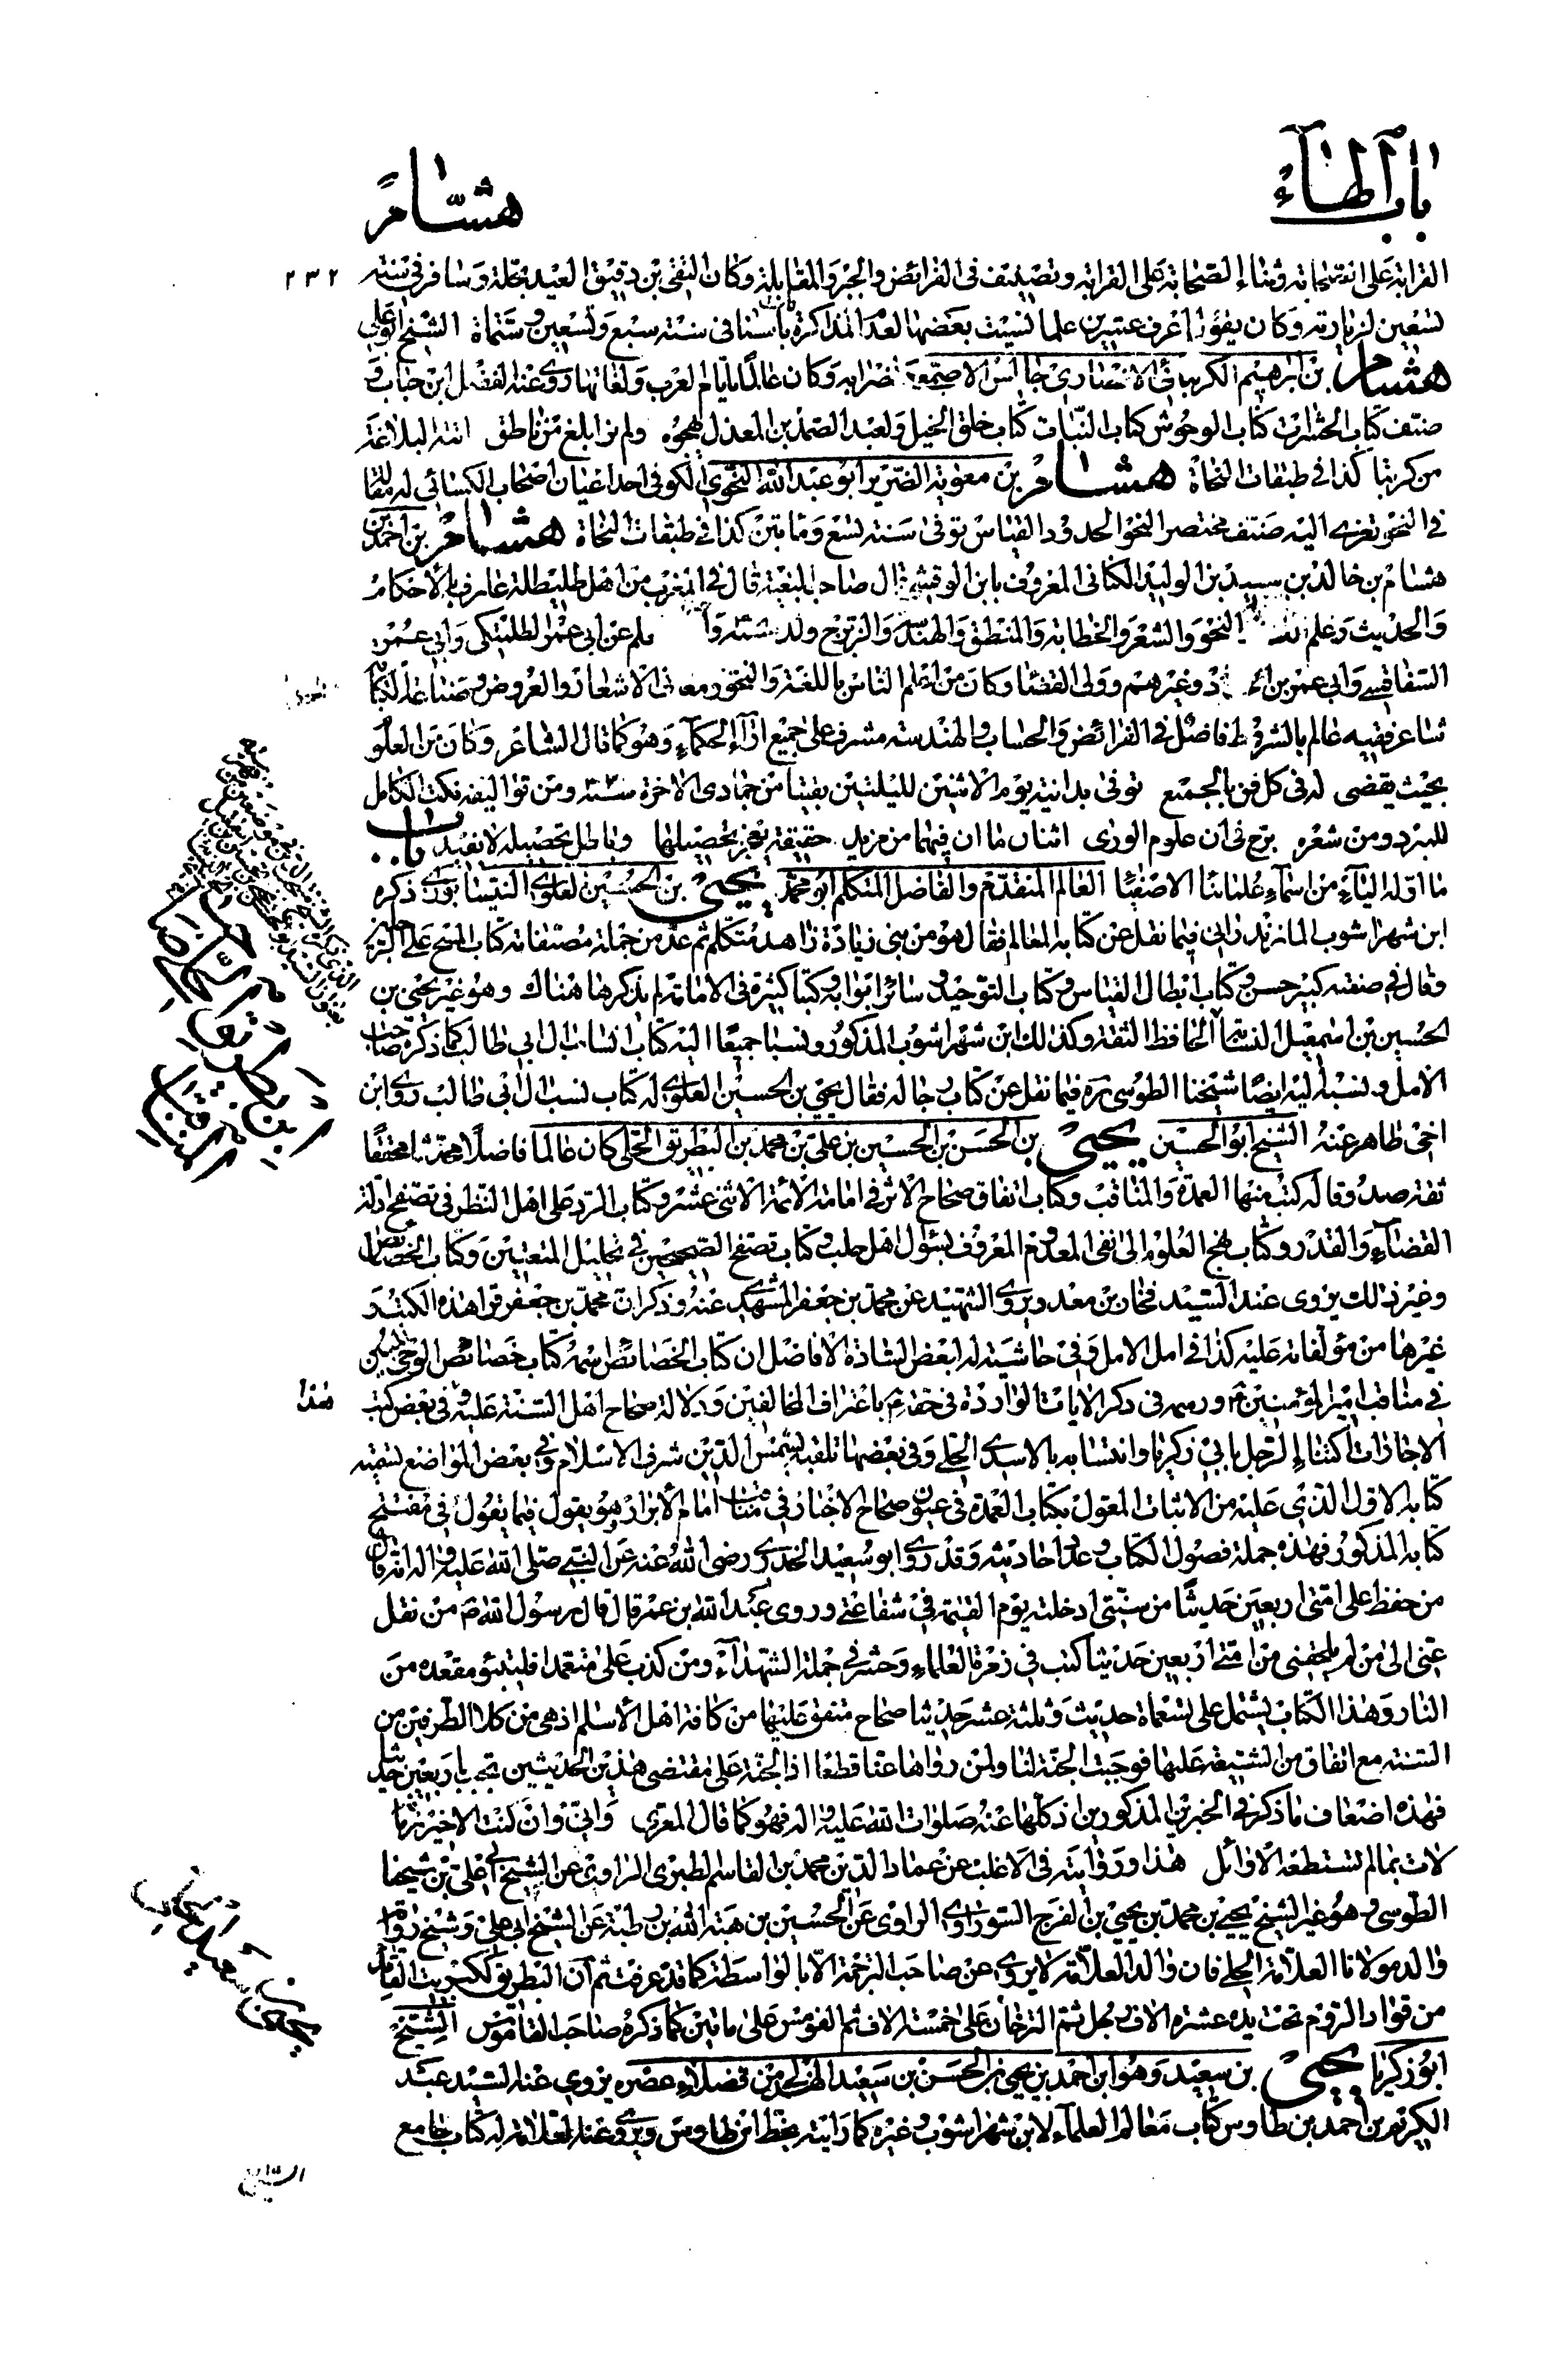 باب الهاء
هشام
٢٣٢
القرابة على الصحابة وثناء الصحابة على القرابة وتصنيف في الفرائض والجبر والمقابلة وكان التقي بن دقيق العيد يجله وسافر في سنة
تسعين لزيارته وكان يقول اعرف عشرين علما نسيت بعضها لعدم المذاكرة مات باسنا في سنة سبع وتسعين وستماة الشيخ ابو علي
هشام بن ابرهيم الكرنبائي الانصاري جالس الاصمعي واضرابه وكان عالما بايام العرب ولغاتها روى عنه الفضل ابن حباب و
صنف كتاب الحشرات كتاب الوحوش كتاب النبات كتاب خلق الخيل ولعبد الصمد بن المعذل يهجوه ولم نر ابلغ من ناطق اتته البلاغة
من كرنبا كذا في طبقات النحاة هشام بن معوية الضرير ابو عبد الله النحوي الكوفي احد اعيان اصحاب الكسائي له مقالة
في النحو تعزى اليه صنف مختصر النحو الحدود القياس توفى سنة تسع ومأتين كذا في طبقات النحاة هشام بن احمد بن
هشام بن خالد بن سعيد بن الوليد الكناني المعروف بابن الوقشي قال صاحب البغية قال في المغرب من اهل طليطلة عارف بالاحكام
والحديث وعلم النحو والشعر والخطابة والمنطق والهندسة والزيج ولد سنة عن ابي عمر الطلمنكي وابي عمرو
السفاقسي وابي عمر بن وغيرهم وولى القضا وكان من اعلم الناس باللغة والنحو ومعاني الاشعار والعروض وصناعة الكتابة
شاعر فقيه عالم بالشروط فاضل في الفرائض والحساب والهندسة مشرف على جميع اراء الحكماء وهو كما قال الشاعر وكان من العلوم
بحيث يقضى له في كل فن بالجميع توفى بدانية يوم الاثنين لليلتين بقيتا من جمادى الاخرة سنة ومن تواليفه نكت الكامل
للمبرد ومن شعره برح في ان علوم الورى اثنان ما ان فيهما من مزيد حقيقة يعجز تحصيلها وباطل تحصيله لا يفيد باب
ما اوله الياء من اسماء علمائنا الاصفيا العالم المتقدم والفاضل المتكلم ابو محمد يحيى بن الحسين العلوي النيسابوري ذكره
ابن شهراشوب المازندراني فيما نقل عن كتابه المعالم فقال هو من بني زيادة زاهد متكلم ثم عد من جملة مصنفاته كتاب المسح على الرجلين
وقال في صفته كبير حسن وكتاب ابطال القياس وكتاب التوحيد وسائر ابوابه وكتبا كثيرة في الامامة لم نذكرها هناك وهو غير يحيى بن
الحسين بن اسمعيل النسابة الحافظ الثقة وكذلك ابن شهراشوب المذكور ونسبا جميعا اليه كتاب انساب ال ابي طالب كما ذكره صاحب
الامل ونسبه اليه ايضا شيخنا الطوسي ره فيما نقل عن كتاب رجاله فقال يحيى بن الحسين العلوي له كتاب نسب ال ابي طالب روى ابن
اخي طاهر عنه الشيخ ابو الحسين يحيى بن الحسن بن الحسين بن علي بن محمد بن البطريق الحلي كان عالما فاضلا محدثا محققا
ثقة صدوقا له كتب منها العمدة والمناقب وكتاب اتفاق صحاح الاثر في امامة الائمة الاثنى عشر وكتاب الرد على اهل النظر في تصفح ادلة
القضاء والقدر وكتاب نهج العلوم الى نفي المعدوم المعروف بسؤال اهل حلب وكتاب تصفح الصحيحين في تحليل المتعتين وكتاب الخصائص
وغير ذلك يروى عنه السيد فخار بن معد ويروي الشهيد عن محمد بن جعفر المشهدي عنه وذكر ان محمد بن جعفر قرا هذه الكتب و
غيرها من مؤلفاته عليه كذا في امل الامل وفي حاشية له لبعض السادة الافاضل ان كتاب الخصائص اسمه كتاب خصائص الوحي المبين
في مناقب امير المؤمنين ع ورسمه في ذكر الايات الواردة في حقه ع باعتراف المخالفين ودلالة صحاح اهل السنة عليه وفي بعض كتب هذا
الاجازات اكتناء الرجل بابي زكريا وانتسابه بالاسدي الحلي وفي بعضها تلقبه بشمس الدين شرف الاسلام وفي بعض المواضع تسميته
كتابه الاول الذي عليه من الاثبات المعول بكتاب العمدة في عيون صحاح الاخبار في مناقب امام الابرار وهو يقول فيما يقول في مفتتح
كتابه المذكور فهذه جملة فصول الكتاب وعدد احاديثه وقد روى ابو سعيد الخدري رضي الله عنه عن النبي صلى الله عليه واله انه قال
من حفظ على امتي اربعين حديثا من سنتي ادخلته يوم القيمة في شفاعتي وروى عبد الله بن عمر قال قال رسول الله ص من نقل
عني الى من لم يلحقني من امتي اربعين حديثا كتب في زمرة العلماء وحشر في جملة الشهداء ومن كذب على متعمدا فليتبوء مقعده من
النار وهذا الكتاب يشتمل على تسعماة حديث وثلثة عشر حديثا صحاح متفق عليها من كافة اهل الاسلام اذ هي من كلا الطرفين من
السنة مع اتفاق من الشيعة عليها فوجبت الجنة لنا ولمن رواها عنا قطعا اذ الجنة على مقتضى هذين الحديثين تجب باربعين حديثا
فهذه اضعاف ما ذكر في الخبرين المذكورين اذ كلها عنه صلوات الله عليه واله فهو كما قال المعري واني وان كنت الاخير زمانه
لات بما لم تستطعه الاوائل هذا وروايته في الاغلب عن عماد الدين محمد بن القاسم الطبري الراوي عن الشيخ ابي علي بن شيخنا
الطوسي وهو غير الشيخ يحيى بن محمد بن يحيى بن الفرج السوراوي الراوي عن الحسين بن هبة الله بن رطبة عن الشيخ ابي علي وشيخ رواية
والد مولانا العلامة الحلي فان والد العلامة لا يروي عن صاحب الترجمة الا بالواسطة كما قد عرفت ثم ان البطريق ككبريت القائد
من قواد الروم تحت يده عشرة الاف رجل ثم الترخان على خمسة الاف ثم القومس على ماتين كما ذكره صاحب القاموس الشيخ
ابو زكريا يحيى بن سعيد وهو ابن احمد بن يحيى بن الحسن بن سعيد الهذلي من فضلاء عصره يروي عنه السيد عبد
الكريم بن احمد بن طاوس كتاب معالم العلماء لابن شهراشوب وغيره كما رايته بخط ابن طاوس ويروي عنه العلامة له كتاب جامع